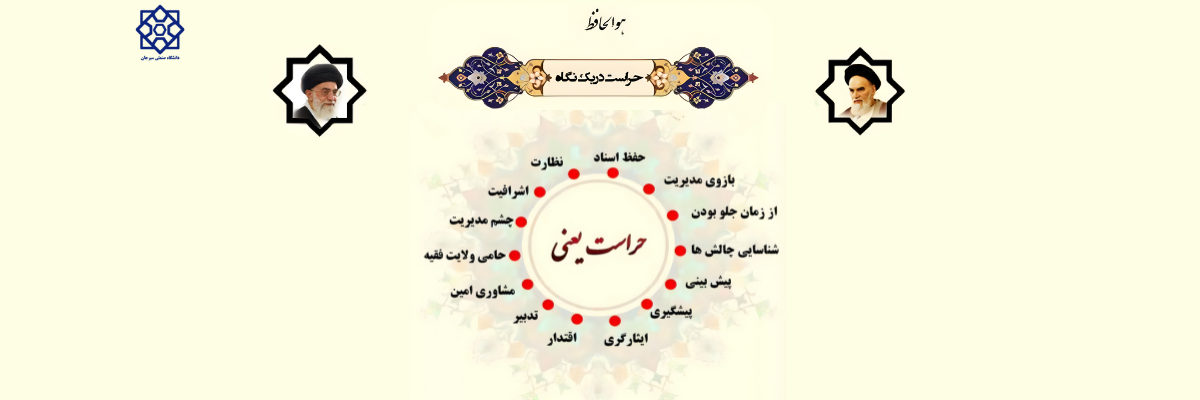 هوالحافظ
دانشگاه صنعتی سیرجان
حراست در یک نگاه
حراست یعنی
حفظ اسناد
بازوی مدیریت
از زمان جلو بودن
شناسایی چالش ها
پیش بینی
پیشگیری
ایثارگری
اقتدار
تدبیر
مشاوری امین
حامی ولایت فقیه
چشم مدیریت
اشرافیت
نظارت